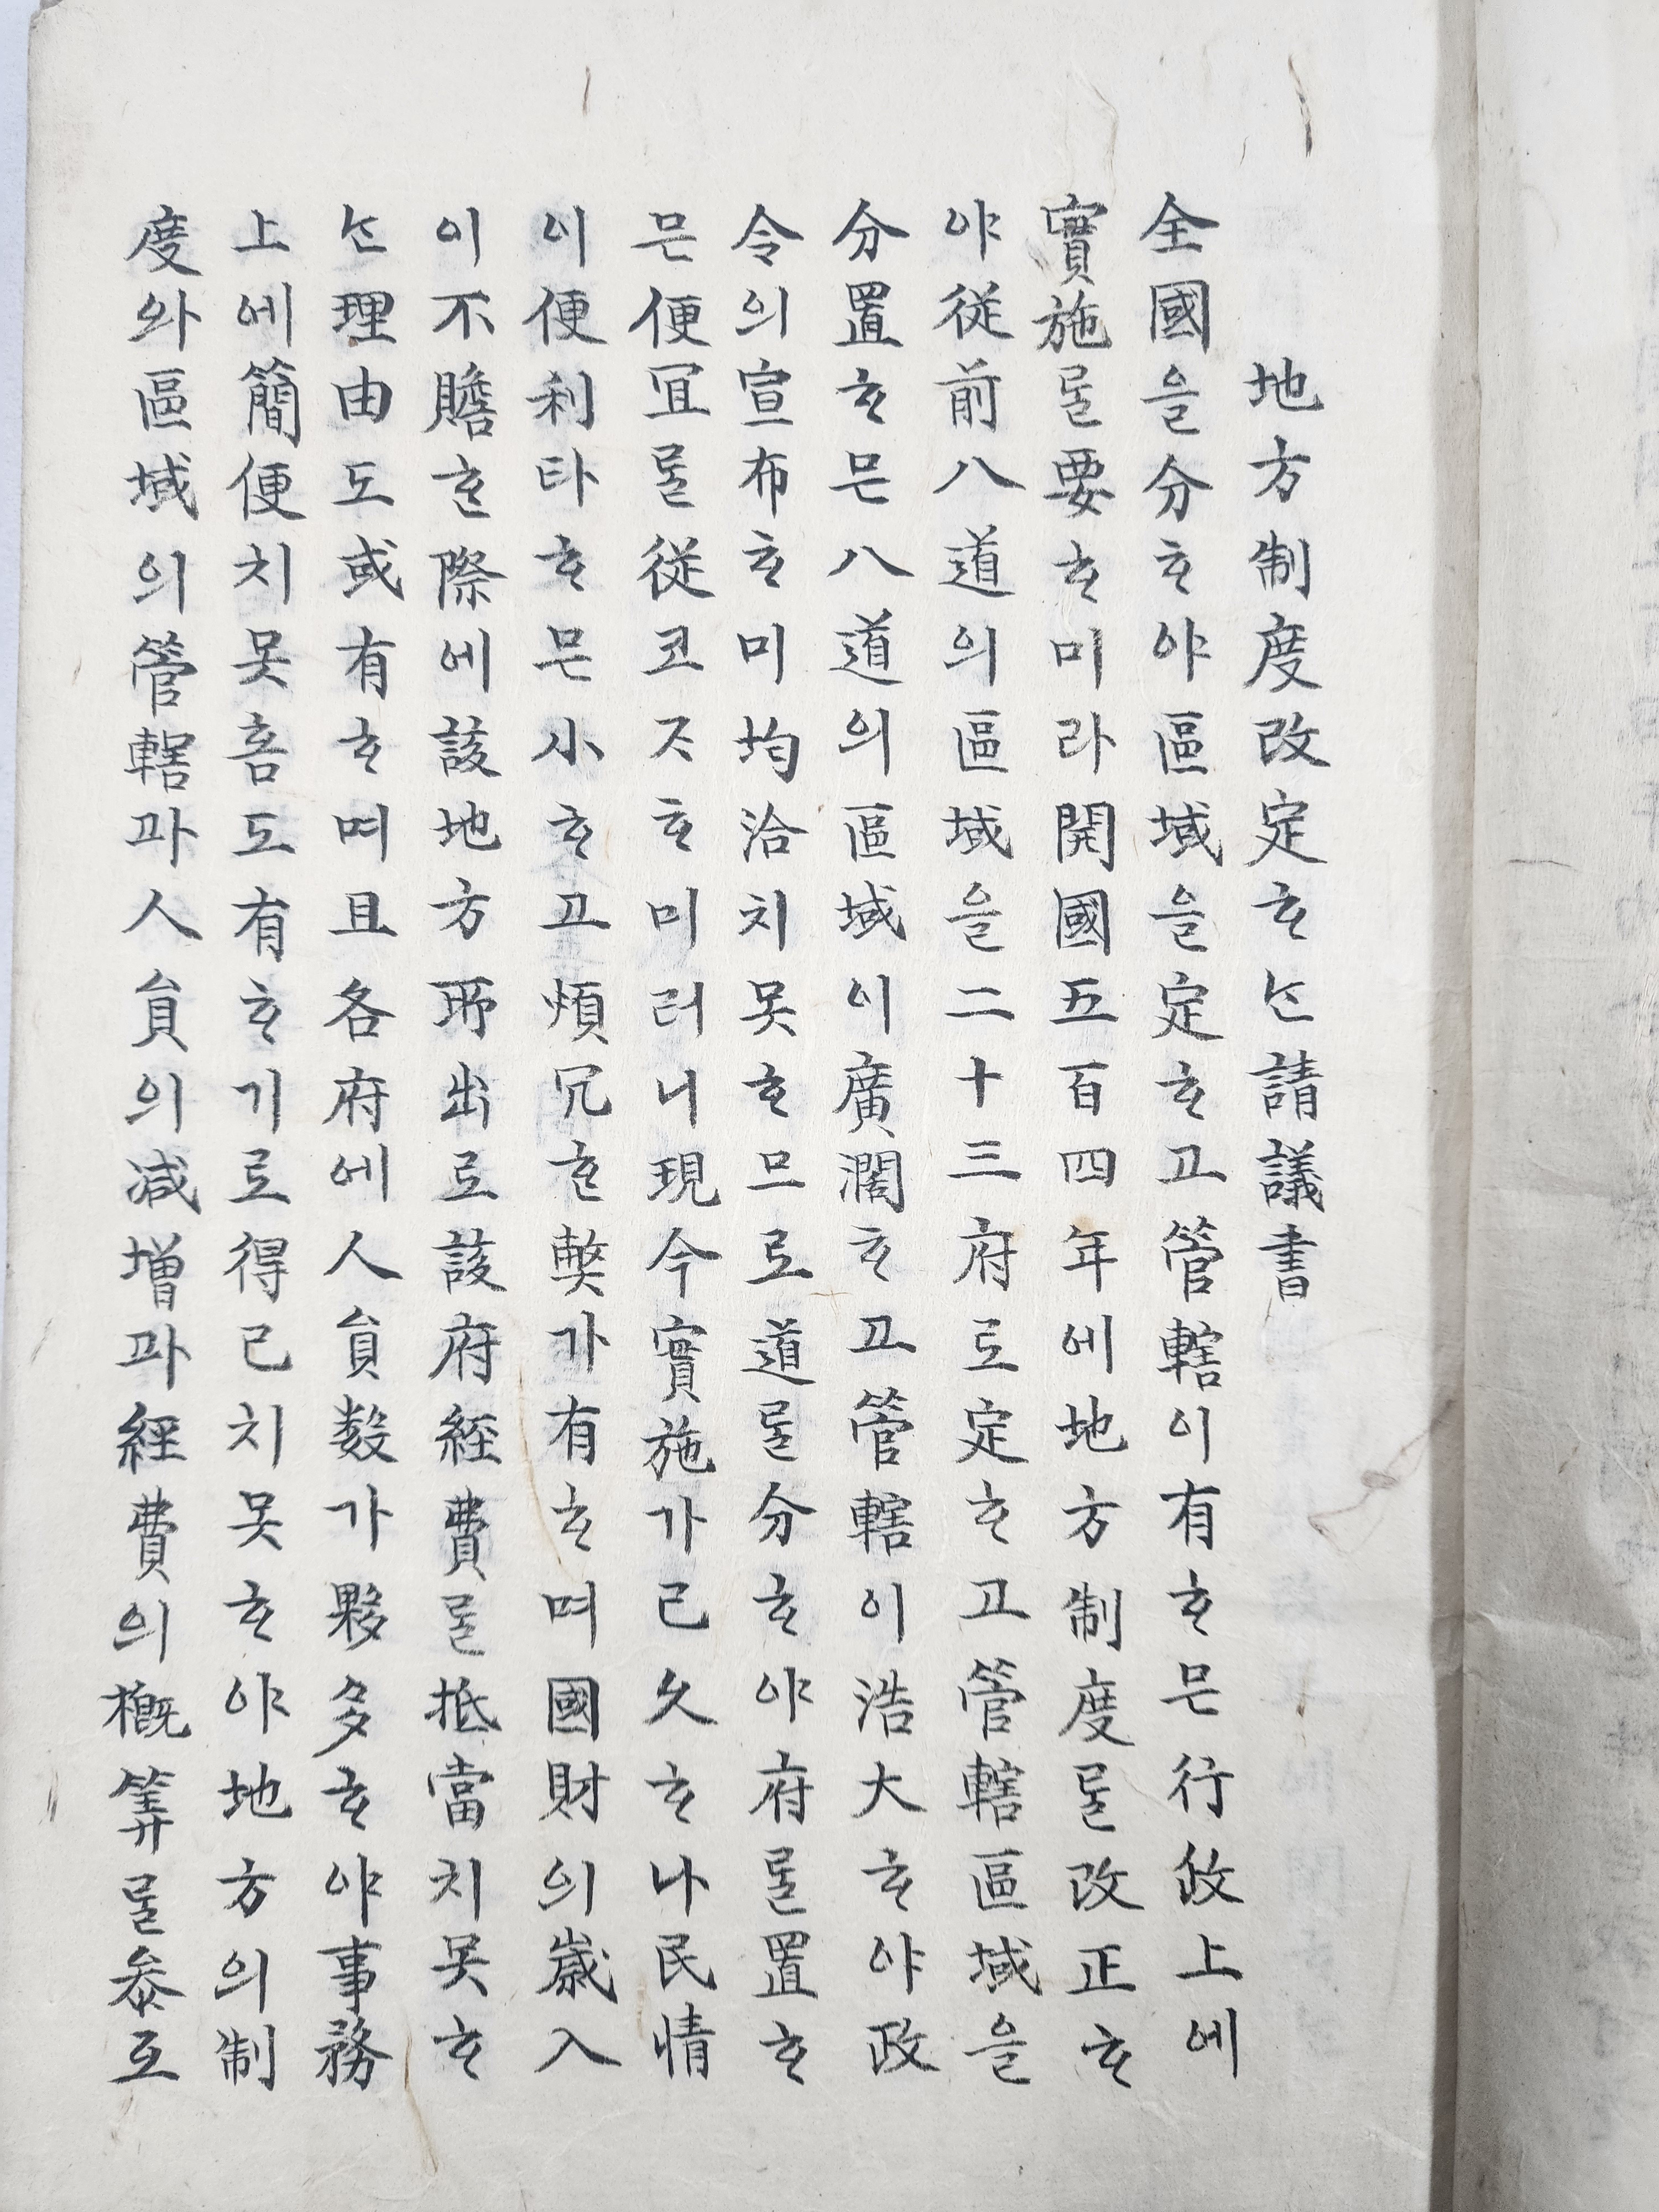 地方制度改定ᄒᆞᄂᆞᆫ請議書
全國을分ᄒᆞ야區域을定ᄒᆞ고管轄이有ᄒᆞ믄行政上에
實施ᄅᆞᆯ要ᄒᆞ미라開國五百四年에地方制度ᄅᆞᆯ改正ᄒᆞ
야從前八道의區域을二十三府로定ᄒᆞ고管轄區域을
分置ᄒᆞ믄八道의區域이廣濶ᄒᆞ고管轄이浩大ᄒᆞ야政
令의宣布ᄒᆞ미均洽치못ᄒᆞ므로道ᄅᆞᆯ分ᄒᆞ야府ᄅᆞᆯ置ᄒᆞ
믄便宜ᄅᆞᆯ從코ᄌᆞᄒᆞ미러니現今實施가已久ᄒᆞ나民情
이便利타ᄒᆞ믄小ᄒᆞ고煩冗ᄒᆞᆫ獘가有ᄒᆞ며國財의歲入
이不贍ᄒᆞᆫ際에該地方所出로該府經費ᄅᆞᆯ抵當치못ᄒᆞ
ᄂᆞᆫ理由도或有ᄒᆞ며且各府에人員數가夥多ᄒᆞ야事務
上에簡便치못홈도有ᄒᆞ기로得已치못ᄒᆞ야地方의制
度와區域의管轄과人員의減增과經費의槪筭ᄅᆞᆯ叅互